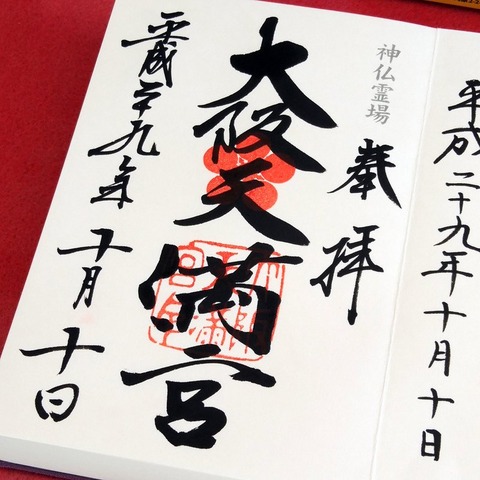 平成二十九年十月十日
神仏霊場
奉拝
大阪天満宮
平成二十九年十月十日
大阪天満宮